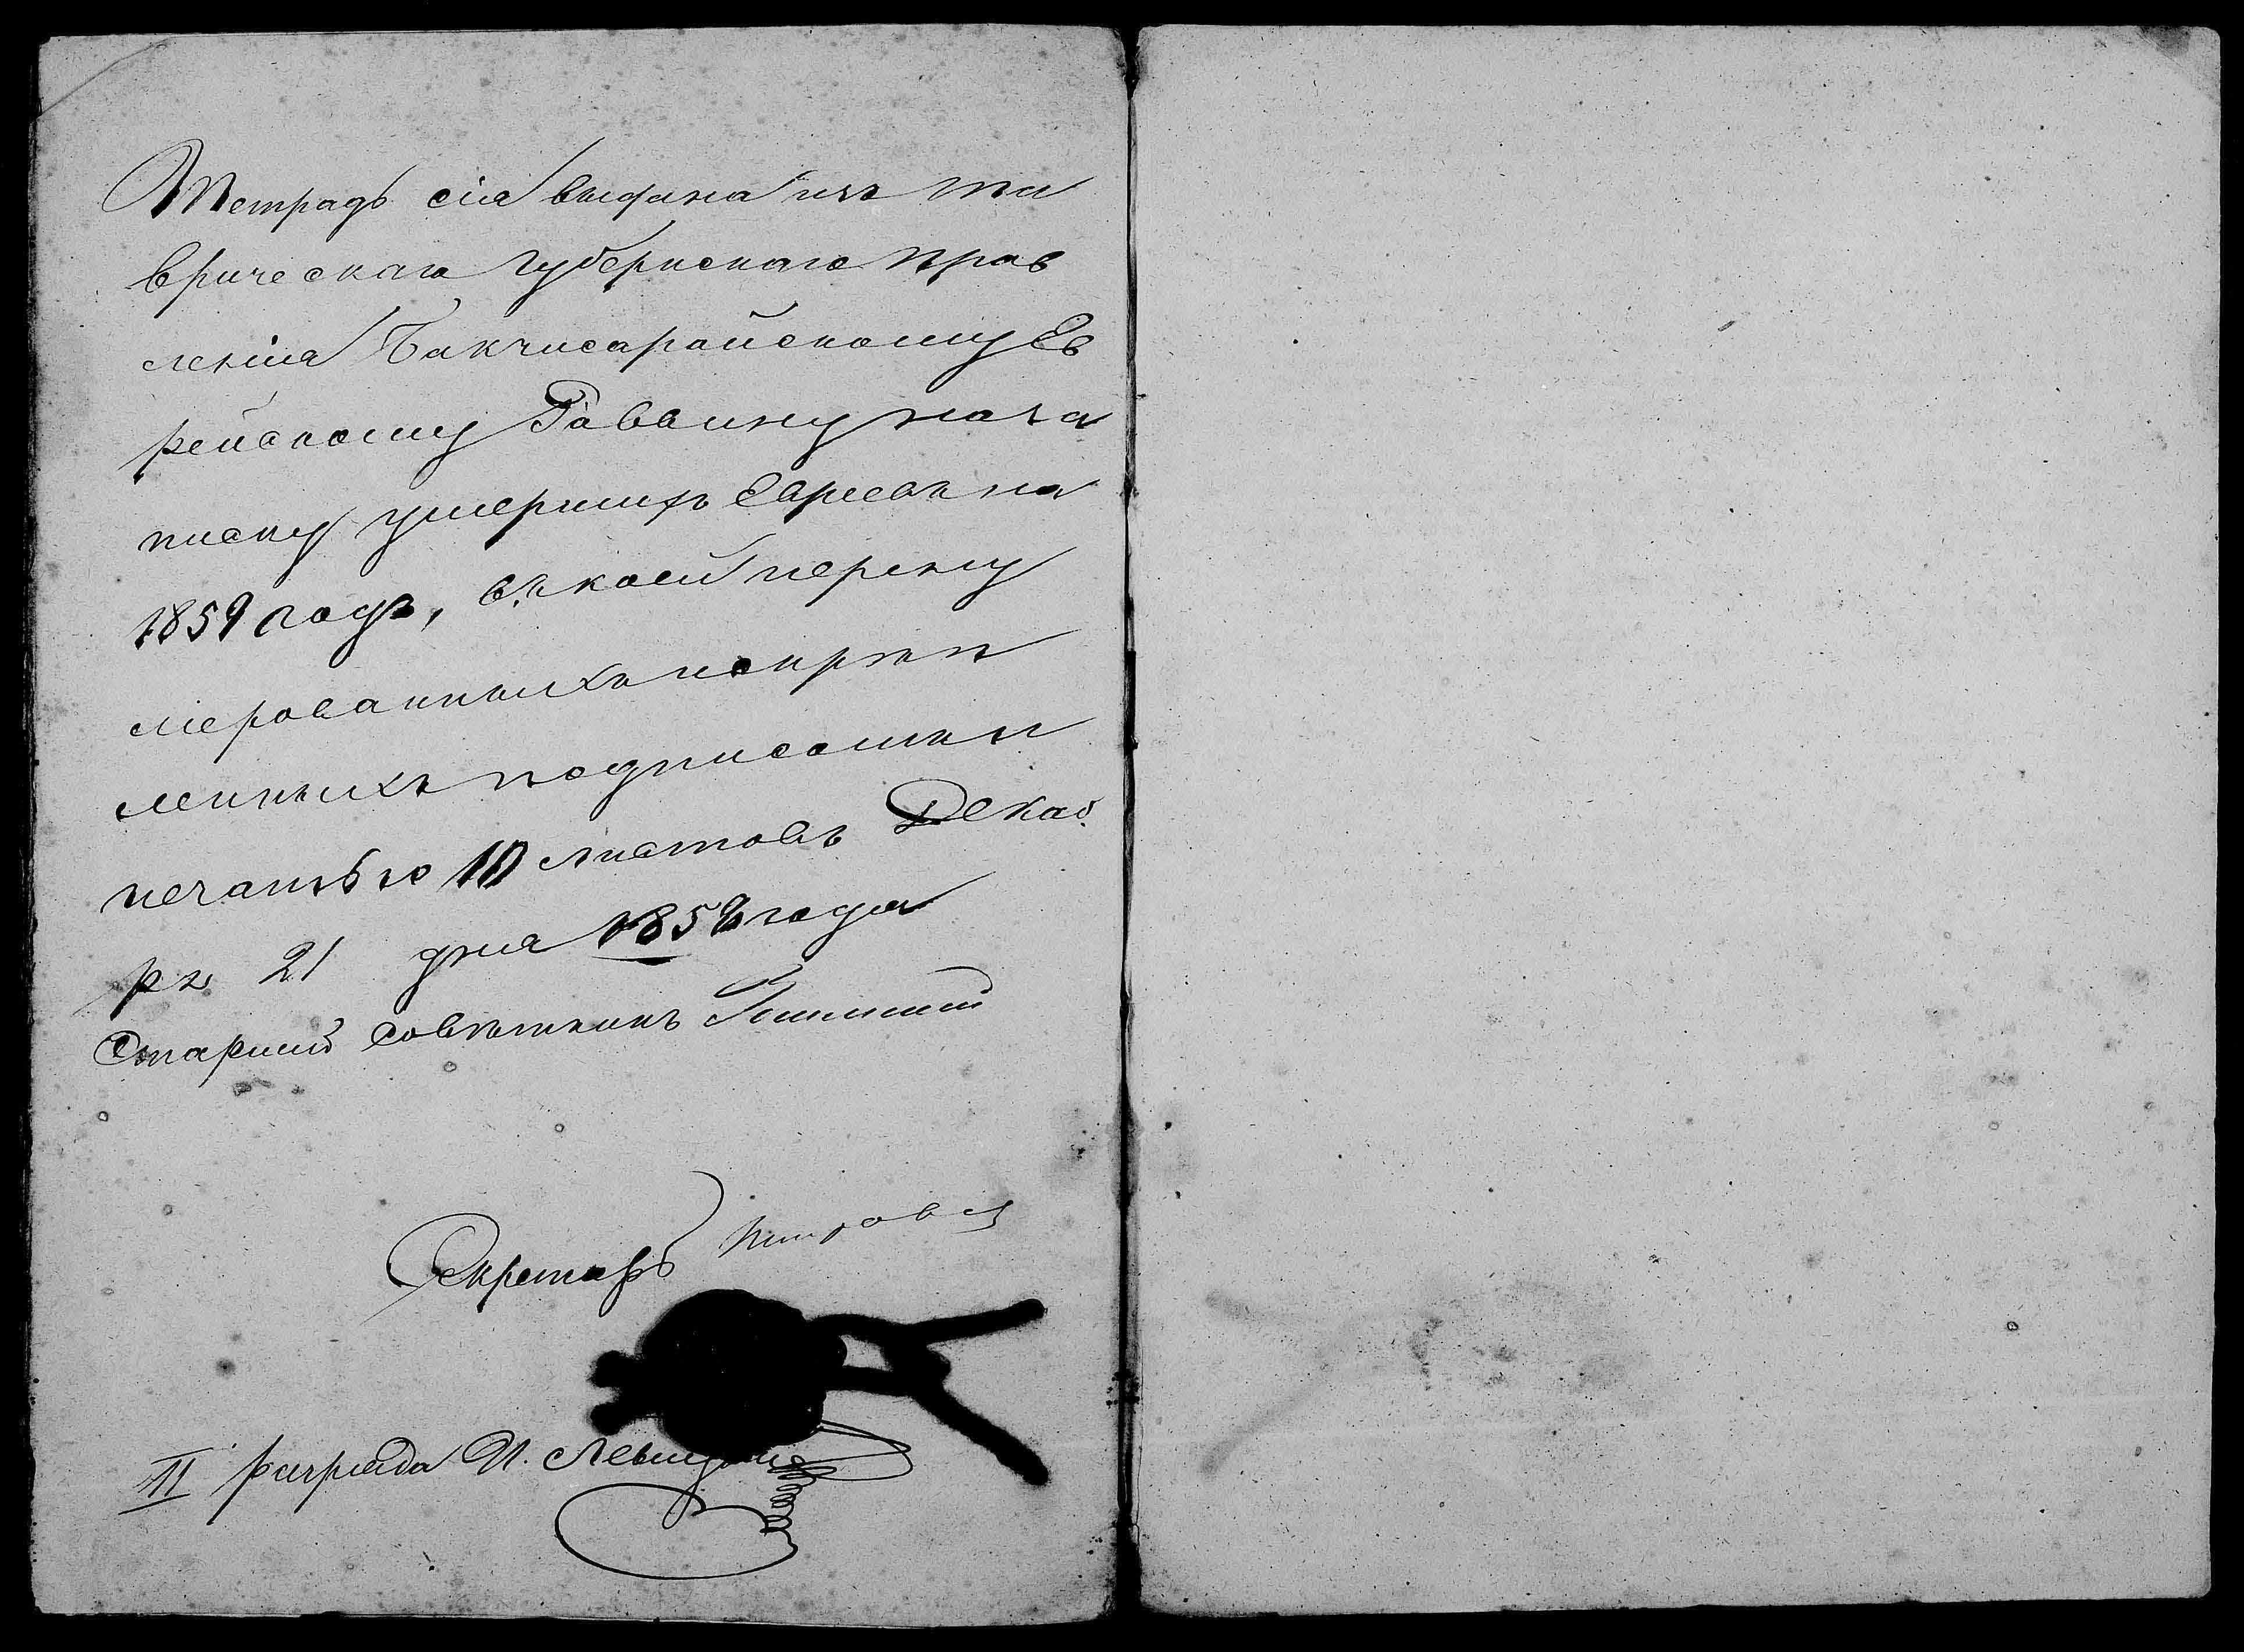 Тетрадь сія выдана изъ Та
врическаго Губернскаго Прав
ленія Бакчисарайскому Ев
рейскому Раввину на за
писку умершихъ Евреевъ на
1859 годъ, въ коей перену
мерованныхъ и скрѣп
ленныхъ подписомъ и
печатью 10 листовъ Декаб.
ря 21 дня 1858 года
Старшій Совѣтникъ
Секретарь
II разряда И.